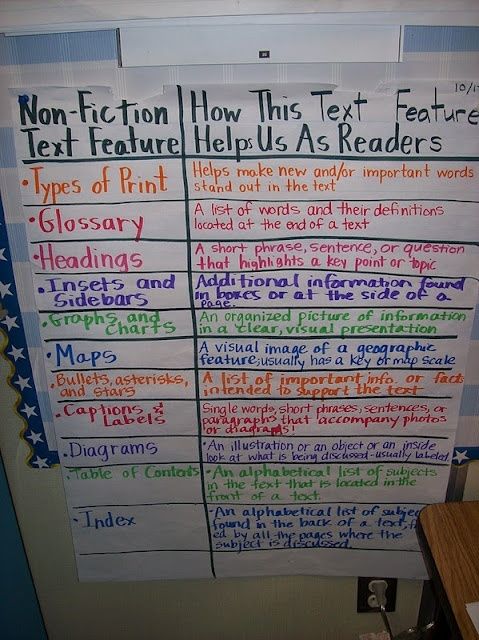 10/1
Non-Fiction
Text Feature
How This Text Feature
Helps Us As Readers
•Types of Print
Helps make new and/or important words
stand out in the text
•Glossary
A list of words and their definitions
located at the end of a text
•Headings
A short phrase, sentence, or question
that highlights a key point or topic
•Insets and
Sidebars
Additional information found
in boxes or at the side of a
page.
•Graphs and
Charts
An organized picture of information
in a clear, visual presentation
•Maps
A visual image of a geographic
feature; usually has a key or map scale
•Bullets, asterisks,
and stars
A list of important info. or facts
intended to support the text
•Captions &
Labels
Single words, short phrases, sentences, or
paragraphs that accompany photos
or diagrams!
•Diagrams
•An illustration or an object or an inside
look at what is being discussed-usually labeled
•Table of Contents
•An alphabetical list of subjects
in the text that is located in the
front of a text.
•Index
•An alphabetical list of subjec
found in the back of a text, f
ed by all the pages where the
subject is discussed.